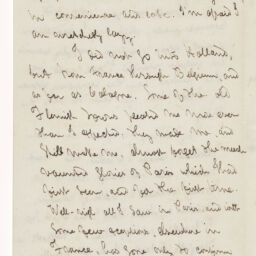 in convenience and cost. I'm afraid I
am wretchedly lazy.
I did not go into Holland,
but from France through Belgium, and
as far as Cologne. Some of the old
Flemish towns pleased me more even
than I expected. They made me, and
still make me, almost forget the much
vaunted glories of Paris which I had
first seen, and for the first time.
Well-nigh all I saw in Paris, and with
some few exceptions, elsewhere in
France, has gone only to confirm